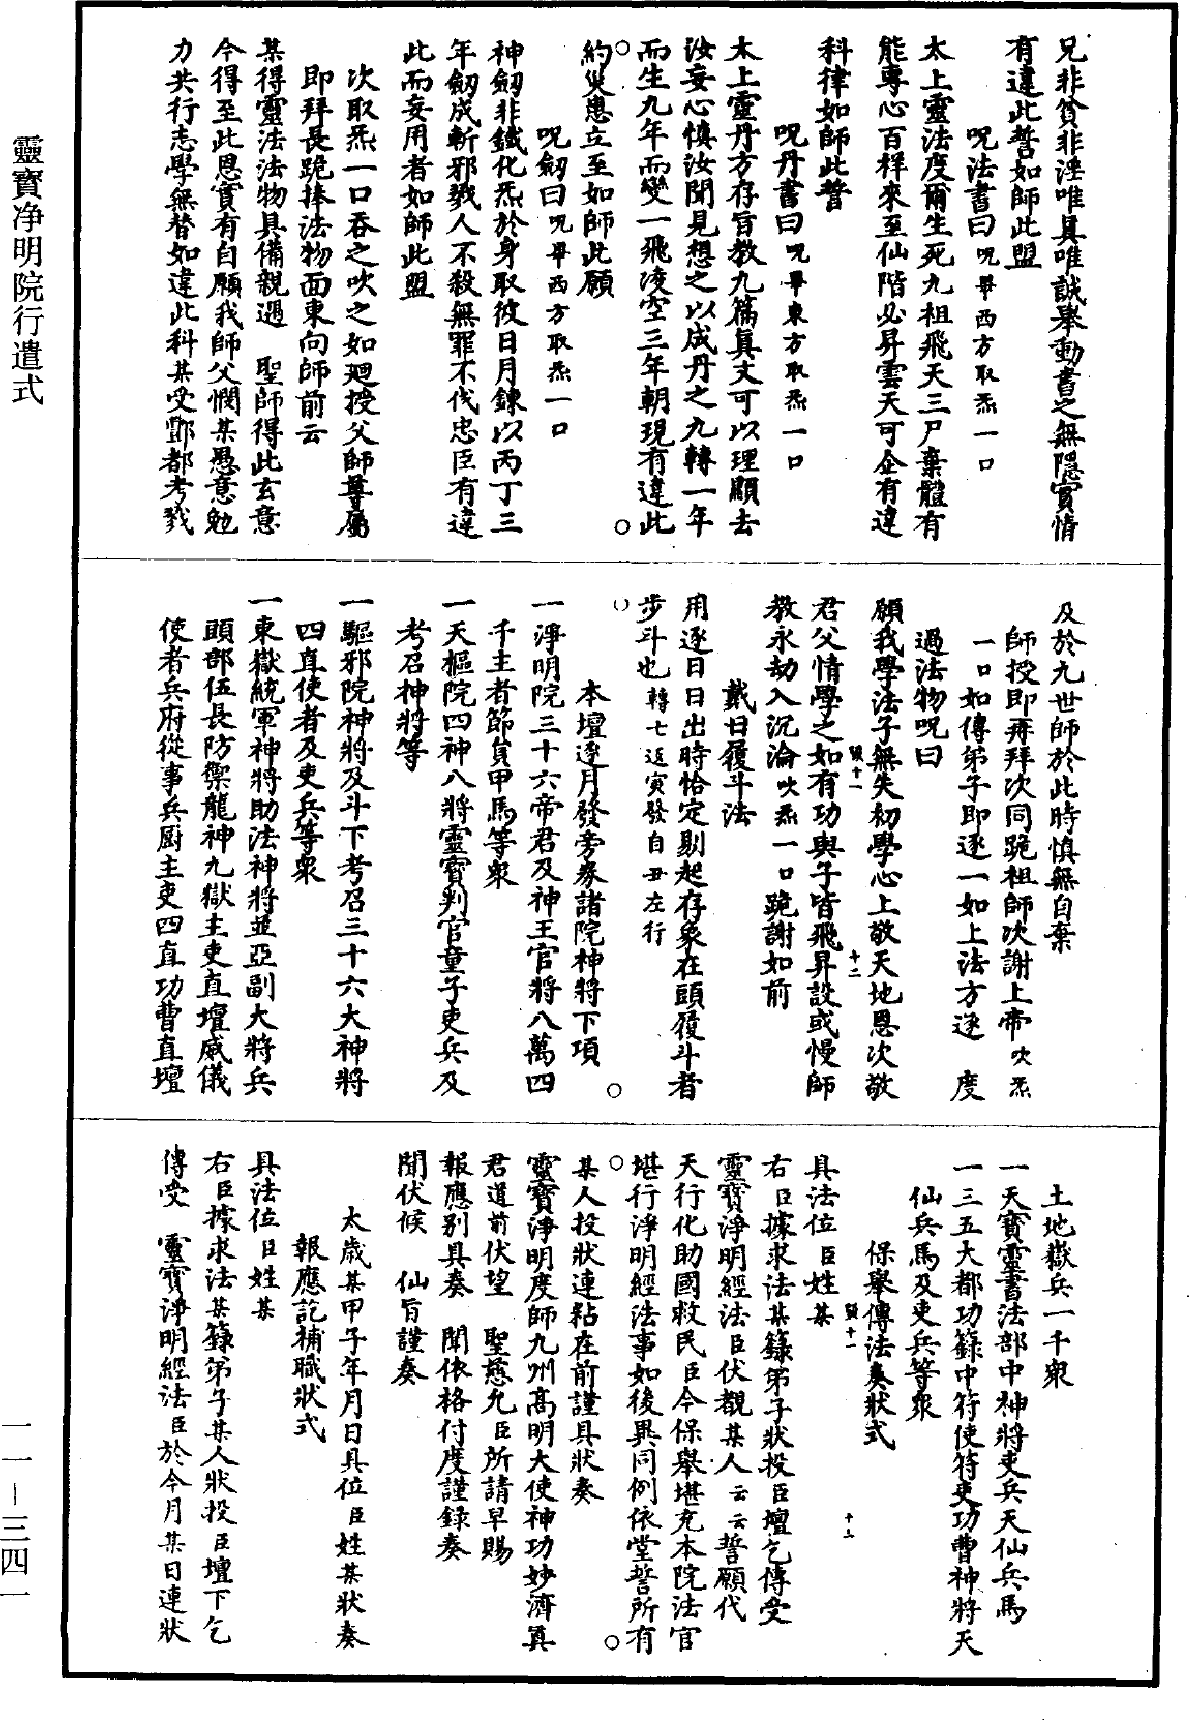 靈寶净明院行遣式
兄非貧非淫唯真唯誠舉動書之無隱實情
有違此誓如師此盟
呪法書曰呪畢西方取炁一口
太上靈法度爾生死九祖飛天三尸棄體有
能專心百樣來至仙階必昇雲天可企有違
科律如師此誓
呪丹書曰呪畢東方取炁一口
太上靈丹方存旨教九篇真文可以理顯去
汝妄心慎汝聞見想之以成丹之九轉一年
而生九年而變一飛淩空三年朝現有違此
約災患立至如師此願
呪劒曰呪畢西方取炁一口
神劒非鐵化炁於身取彼日月鍊以丙丁三
年劒成斬邪戮人不殺無罪不伐忠臣有違
此而妄用者如師此盟
次取炁一口吞之吹之如廻授父師尊屬
即拜長跪捧法物面東向師前云
某得靈法法物具備親遇　聖師得此玄意
今得至此恩實有自願我師父憫某愚意勉
力共行志學無替如違此科某受酆都考戮
及於九世師於此時慎無自棄
師授即再拜次同跪祖師次謝上帝吹炁
一口如傳弟子即逐一如上法方逐　度
過法物呪曰
願我學法子無失初學心上敬天地恩次敬
君父情學之如有功與子皆飛昇設或慢師
教永劫入沉淪吹炁一口跪謝如前
戴日履斗法
用逐日日出時恰定剔起存象在頭履斗者
步斗也轉七返寅發自丑左行
本壇逐月發旁券諸院神將下項
一淨明院三十六帝君及神王官將八萬四
千主者節負甲馬等衆
一天樞院四神八將靈寶判官童子吏兵及
考召神將等
一驅邪院神將及斗下考召三十六大神將
四直使者及吏兵等衆
一東嶽統軍神將助法神將並亞副大將兵
頭部伍長防禦龍神九獄主吏直壇威儀
使者兵府從事兵厨主吏四直功曹直壇
土地獄兵一千衆
一天寶靈書法部中神將吏兵天仙兵馬
一三五大都功籙中符使符吏功曹神將天
仙兵馬及吏兵等衆
保舉傳法奏狀式
具法位臣姓某
右臣據求法某籙弟子狀投臣壇乞傳受
靈寶淨明經法臣伏覩某人云云誓願代
天行化助國救民臣今保舉堪充本院法官
堪行淨明經法事如後異同例依堂誓所有
某人投狀連粘在前謹具狀奏
靈寶淨明度師九州高明大使神功妙濟真
君道前伏望　聖慈允臣所請早賜
報應别具奏　聞依格付度謹錄奏
聞伏候　仙旨謹奏
太歲某甲子年月日具位臣姓某狀奏
報應訖補職狀式
具法位臣姓某
右臣據求法某籙弟子某人狀投臣壇下乞
傳受　靈寶淨明經法臣於今月某日連狀
一一－三四一